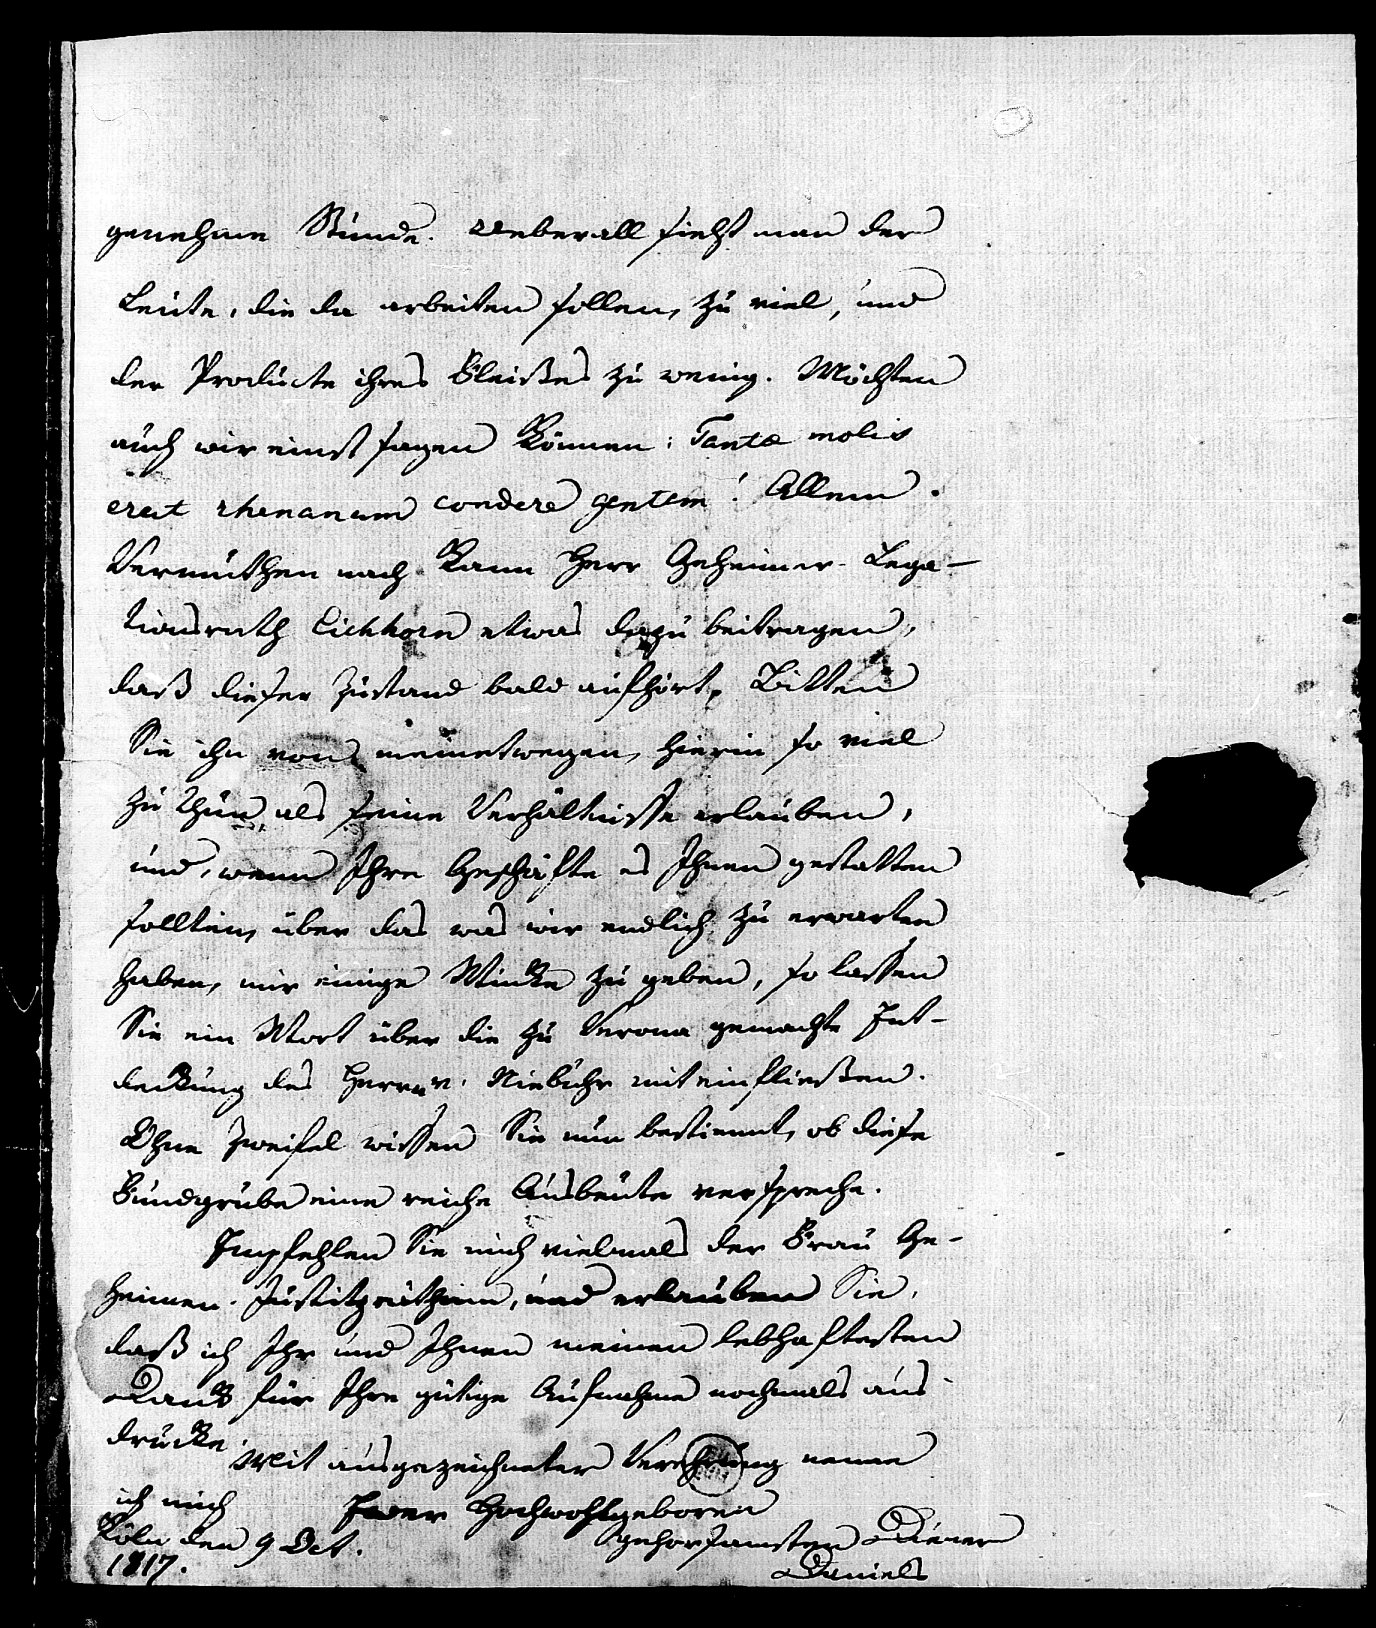 genehme Stunde. Ueberall sieht man der
Leute, die da arbeiten sollen, zu viel, und
der Producte ihres Fleißes zu wenig. Möchten
auch wir einst sagen können: Tantæ molis
erat rhenanam condere gentem! Allem
Vermuthen nach kann Herr Geheimer-Lega-
tionsrath Eichhorn etwas dazu beitragen,
daß dieser Zustand bald aufhört. Bitten
Sie ihn von meinetwegen, hierin so viel
zu thun, als seine Verhältnisse erlauben,
und, wenn Ihre Geschäfte es Ihnen gestatten
sollten, über das was wir endlich zu erwarten
haben, mir einige Winke zu geben, so lassen
Sie ein Wort über die zu Verona gemachte Ent-
deckung des Herrn v. Niebuhr mit einfließen.
Ohne Zweifel wissen Sie nun bestimmt, ob diese
Fundgrube eine reiche Ausbeute verspreche.
Empfehlen Sie mich vielmals der Frau Ge-
heimen-Justitzräthinn, und erlauben Sie,
daß ich Ihr und Ihnen meinen lebhaftesten
Dank für Ihre gütige Aufnahme nochmals aus-
drücke. Mit ausgezeichneter Verehrung nenne
ich mich Euer Hochwohlgeboren
Köln den 9 Oct. gehorsamsten Diener
1817. Daniels